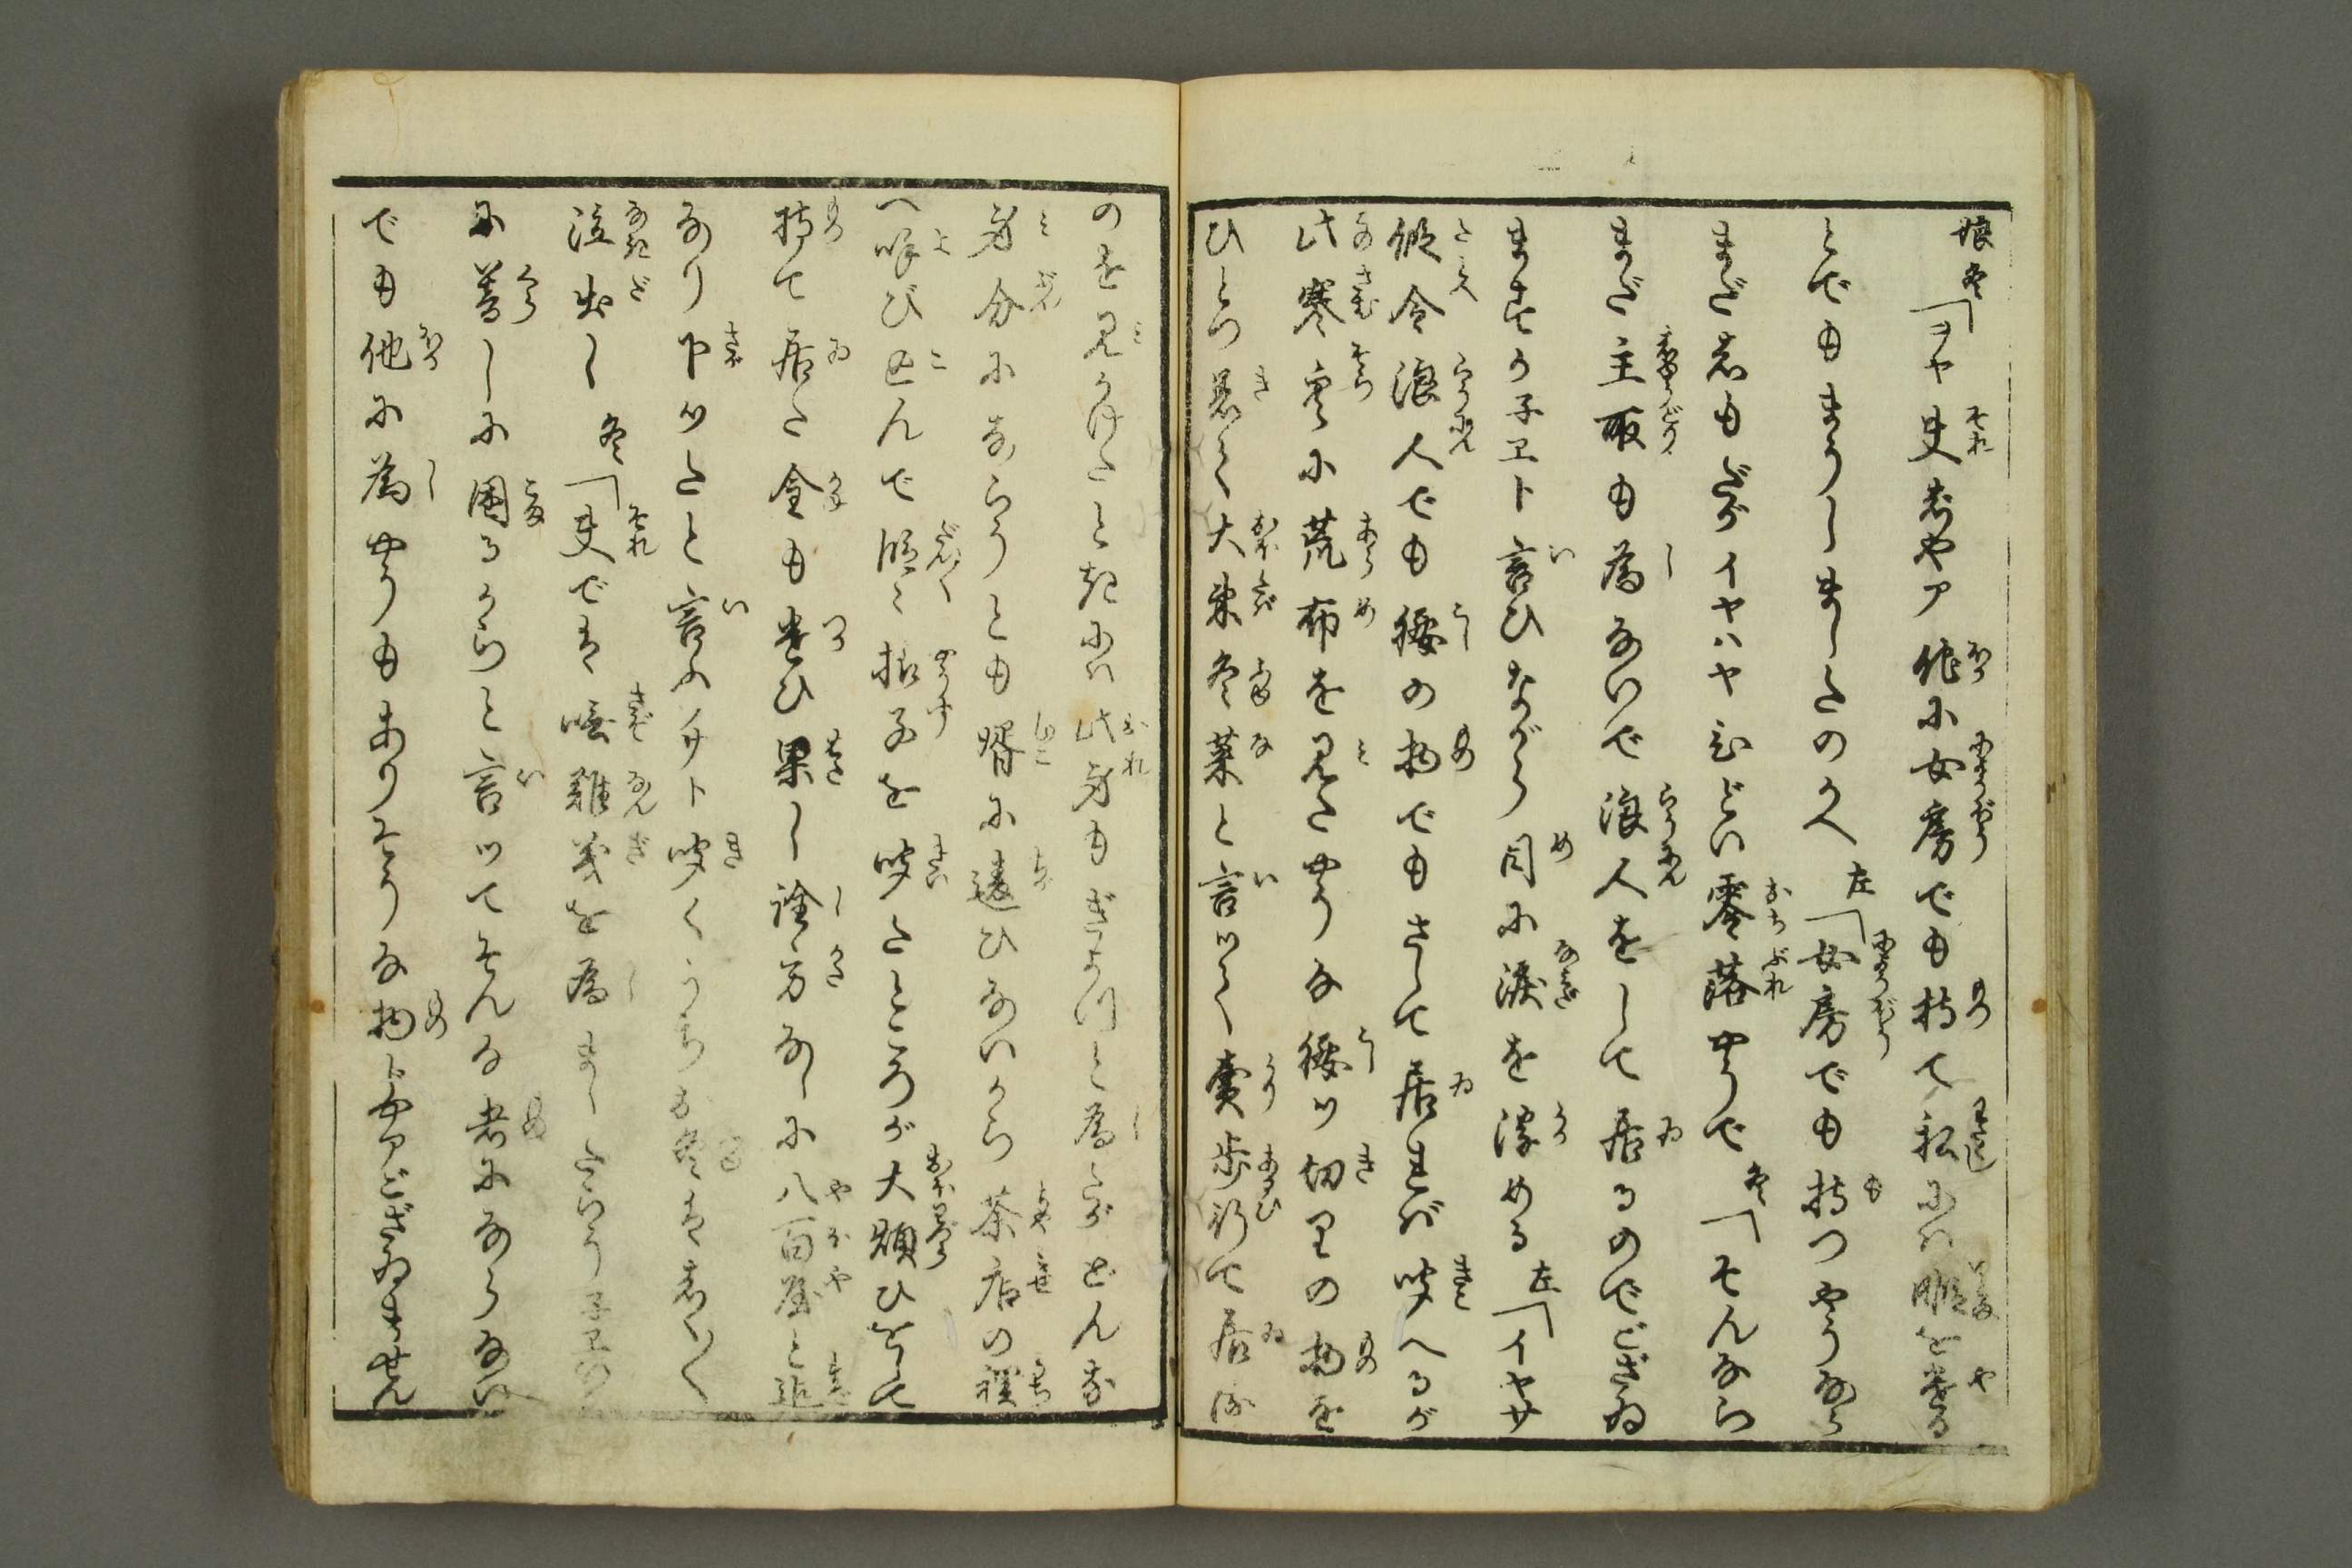 娘冬「ヲヤ夫じやア他に女房でも持て私にハ暇を遣る
とでもまうしましたのかへ左「女房でも持つやうなら
まだ志もだがイヤハヤひどい零落やうで冬「そんなら
まだ主取も為ないで浪人をして居るのでござゐ
ますか子ヱト言ひながら目に涙を浮める左「イヤサ
縦令浪人でも腰の物でもさして居れば聞へるが
此寒空に荒布を見たやうな腰ツ切りの物を
ひとつ着て大束冬菜と言ツて賣歩行て居る
のを見かけたときにハ此身もぎよつと為たがどんな
身分にならうとも婿に違ひないから茶店の裡
へ呼び込んで段々様子を聞たところが大煩ひをして
持て居た金も遣ひ果し詮方なしに八百屋と迄
なり下ツたと言ふ㕝サト聞くうちお冬はしく〱
泣出し冬「夫では嘸難義を為ましたらう子ヱ
に暮しに困るからと言ツてそんな者にならない
でも他に為やうもありそうな物じやアござゐません